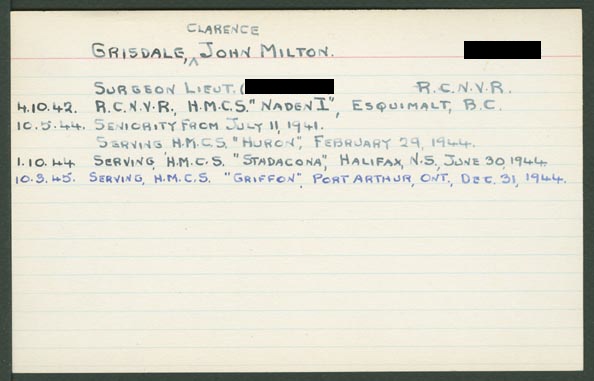 CLARENCE
GRISDALE, ^ JOHN MILTON.
SURGEON LIEUT. ( R.C.N.V.R.
4.10.42. R.C.N.V.R., H.M.C.S. "NADEN I", ESQUIMALT, B.C.
10.5.44. SENIORITY FROM JULY 11, 1941.
SERVING, H.M.C.S. "HURON", FEBRUARY 29, 1944.
1.10.44 SERVING, H.M.C.S. "STADACONA", HALIFAX, N.S., JUNE 30, 1944
10.3.45. SERVING, H.M.C.S. "GRIFFON", PORT ARTHUR, ONT., DEC. 31, 1944.